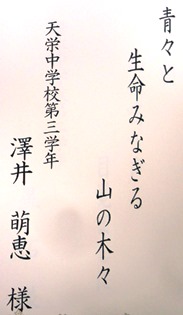 青々と
生命みなぎる
山の木々
天栄中学校第三学年
澤井 萌恵 様